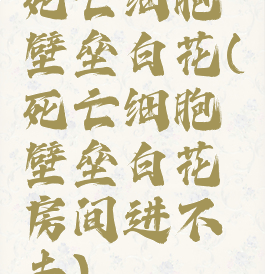 死亡细胞
壁垒白花(
死亡细胞
壁垒白花
房间进不
去)